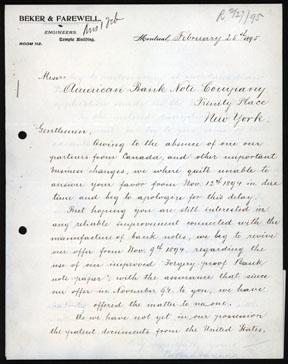 BEKER & FAREWELL,
ENGINEERS
Temple Building.
ROOM 112.
R 2/27/95
Montreal, February 26th 1895.
Messrs
American Bank Note Company
Trinity Place
New York.
Gentlemen,
Owing to the absence of one our
partners from Canada, and other important
business changes, we where quite unable to
answer your favor from Nov. 12th 1894 in due
time and beg to apologize for this delay.
But hoping you are still interested in
any reliable improvement connected with the
manufacture of bank notes, we beg to revive
our offer from Nov. 9th 1894, regarding the
use of our improved "Forgery proof Bank
note paper", with the assurance that since
our offer in November 94 to you, we have
offered the matter to no one.
We have not yet in our possession
the patent documents from the United States,